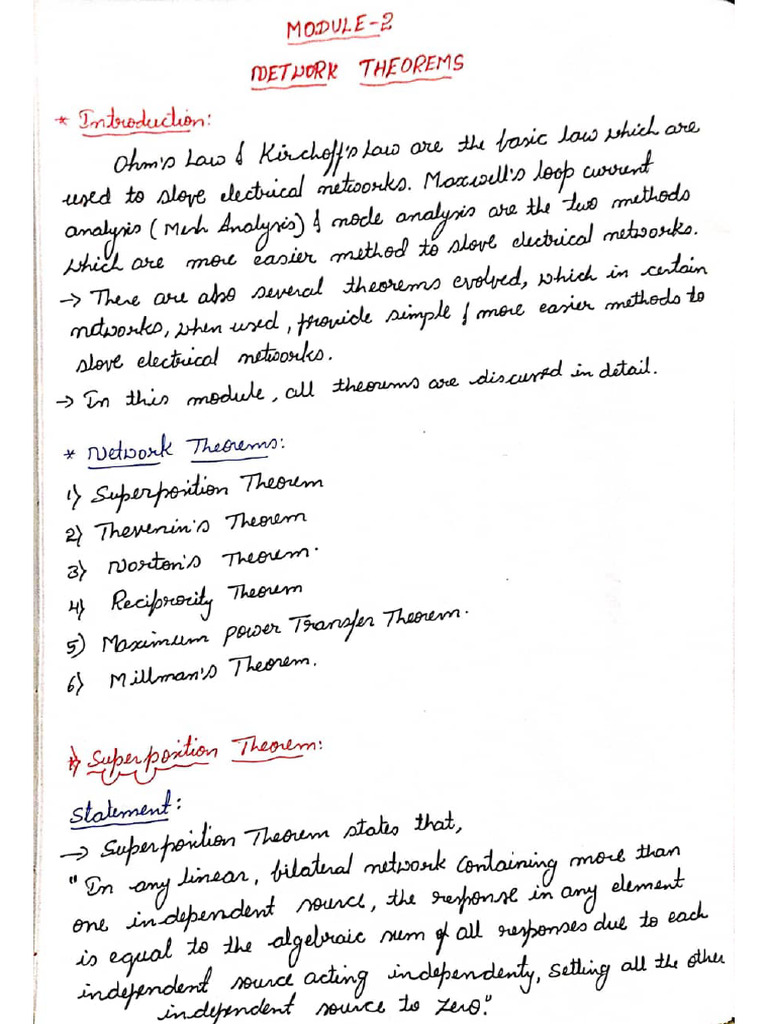 MODULE-2
NETWORK THEOREMS
* Introduction:
Ohm's Law & Kirchoff's Law are the basic law which are
used to slove electrical networks. Maxwell's loop current
analysis (Mesh Analysis) & node analysis are the two methods
which are more easier method to slove electrical networks.
→ There are also several theorems evolved, which in certain
networks, when used, provide simple & more easier methods to
slove electrical networks.
→ In this module, all theorums are discussed in detail.
* Network Theorems:
1) Superposition Theorem
2) Thevenin's Theorem
3) Norton's Theorem.
4) Reciprocity Theorem
5) Maximum power Transfer Theorem.
6) Millman's Theorem.
1) Superposition Theorem:
Statement:
→ Superposition Theorem states that,
"In any linear, bilateral network containing more than
one independent source, the response in any element
is equal to the algebraic sum of all responses due to each
independent source acting independenty, setting all the other
independent source to zero."